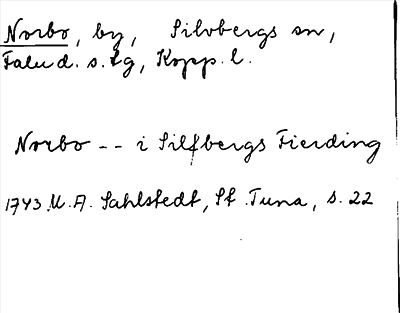 Norbo, by, Silvbergs sn,
Falu d. s. lg, Kopp. l.
Norbo -- i Silfbergs Fierding
1743 M. A. Sahlstedt, St. Tuna, s. 22